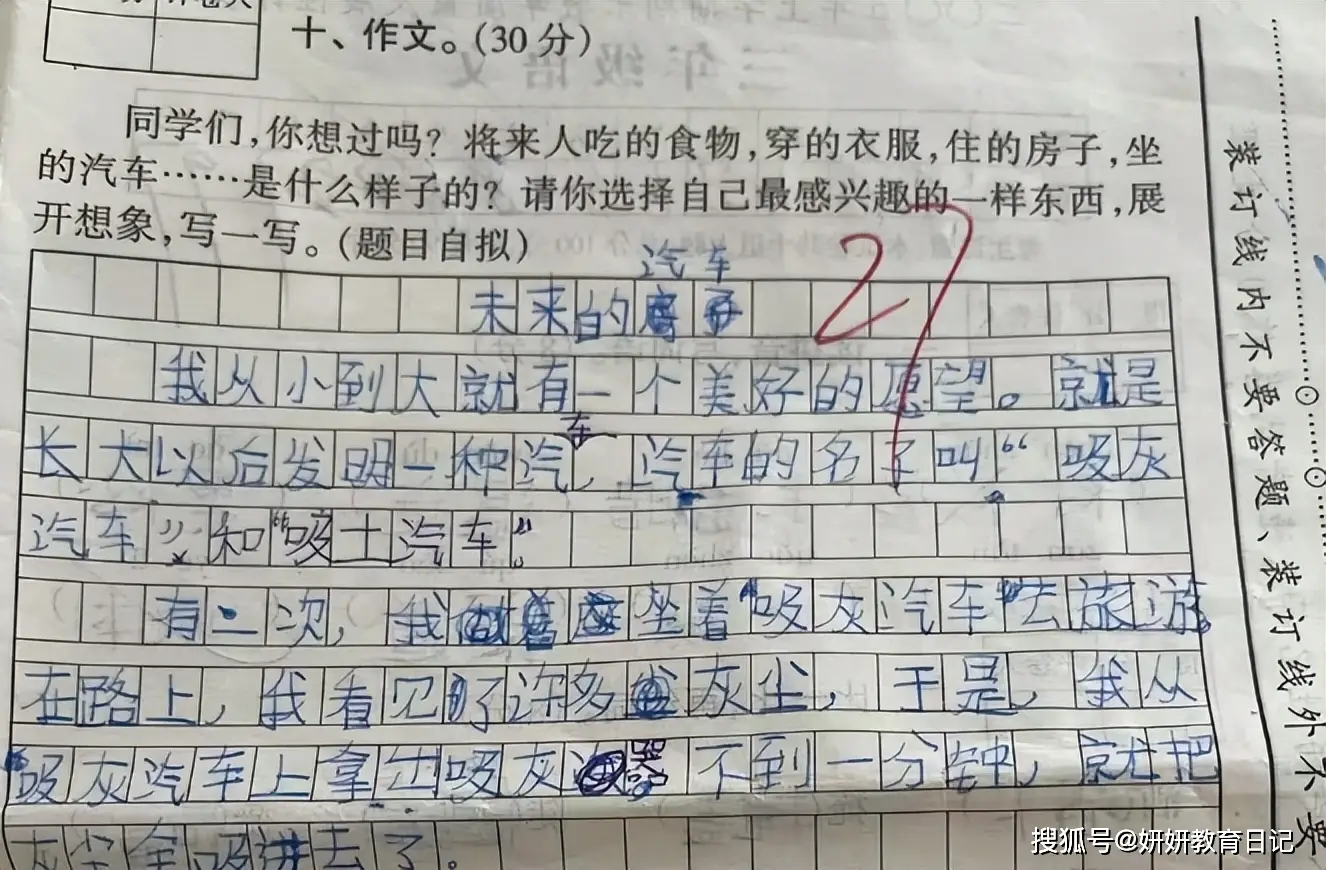 十、作文。(30分)
同学们,你想过吗?将来人吃的食物,穿的衣服,住的房子,坐
的汽车……是什么样子的?请你选择自己最感兴趣的一样东西,展
开想象,写一写。(题目自拟)
27
汽车
未来的
我从小到大就有一个美好的愿望。就是
长大以后发明一种汽车,汽车的名字叫“吸灰
汽车”和“吸土汽车”。
有一次,我坐着“吸灰汽车”去旅游。
在路上,我看见了许多灰尘,于是,我从
吸灰汽车上拿出吸灰器不到一分钟,就把
灰尘全吸进去了。
装订线内不要答题、装订线外不要
搜狐号@妍妍教育日记